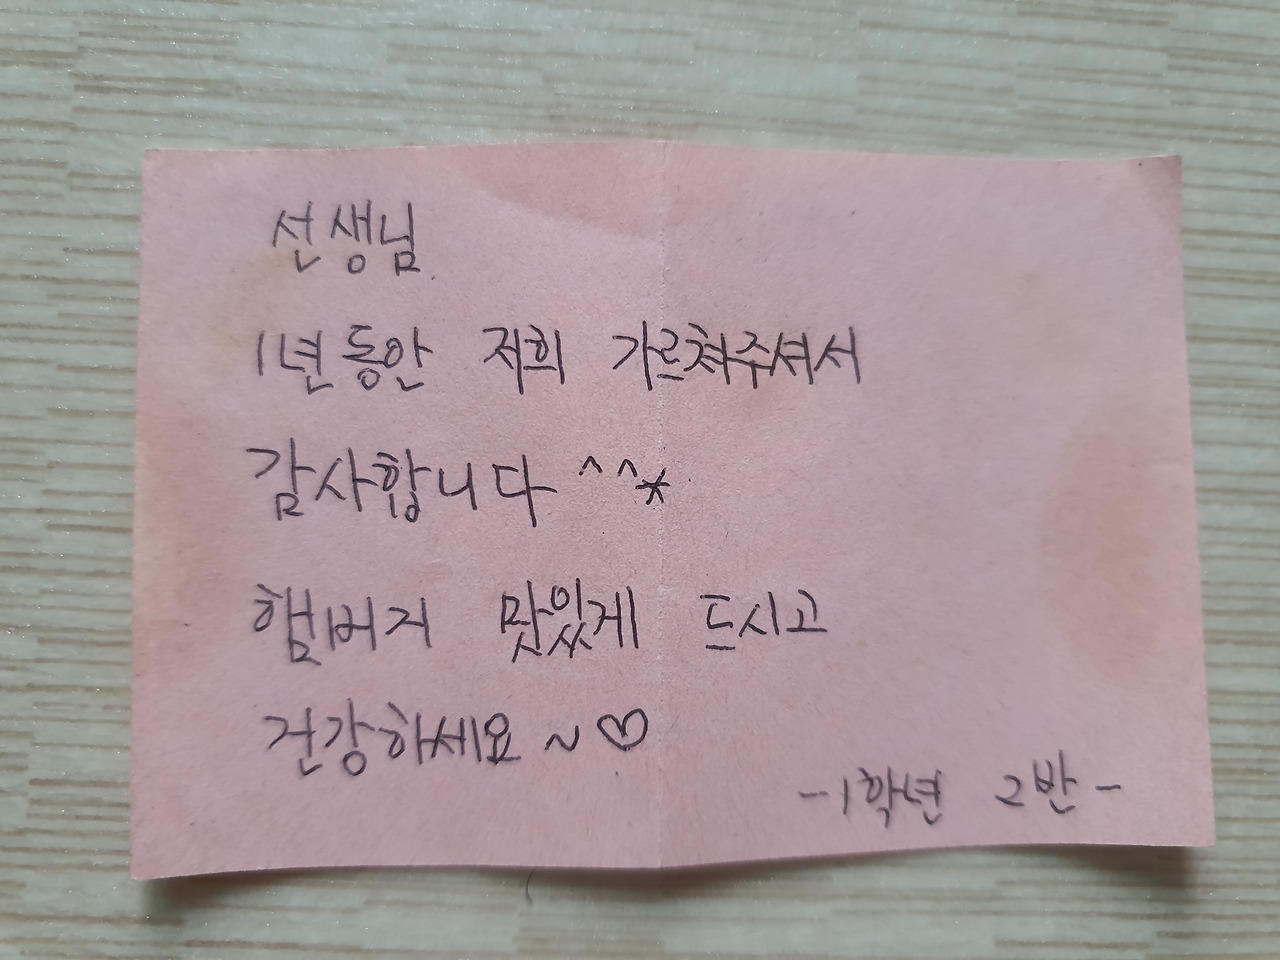 선생님
1년동안 저희 가르쳐주셔서
감사합니다 ^^*
햄버거 맛있게 드시고
건강하세요 ~♡
-1학년 2반-